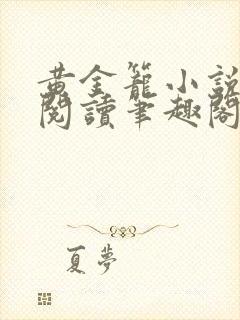 黃金籠小說
閱讀筆趣閣
夏夢